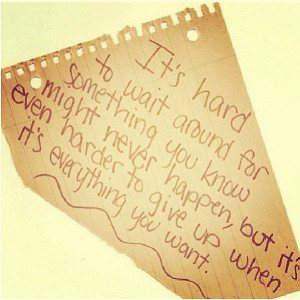 It's hard
to wait around for
something you know
might never happen, but it's
even harder to give up when
it's everything you want.